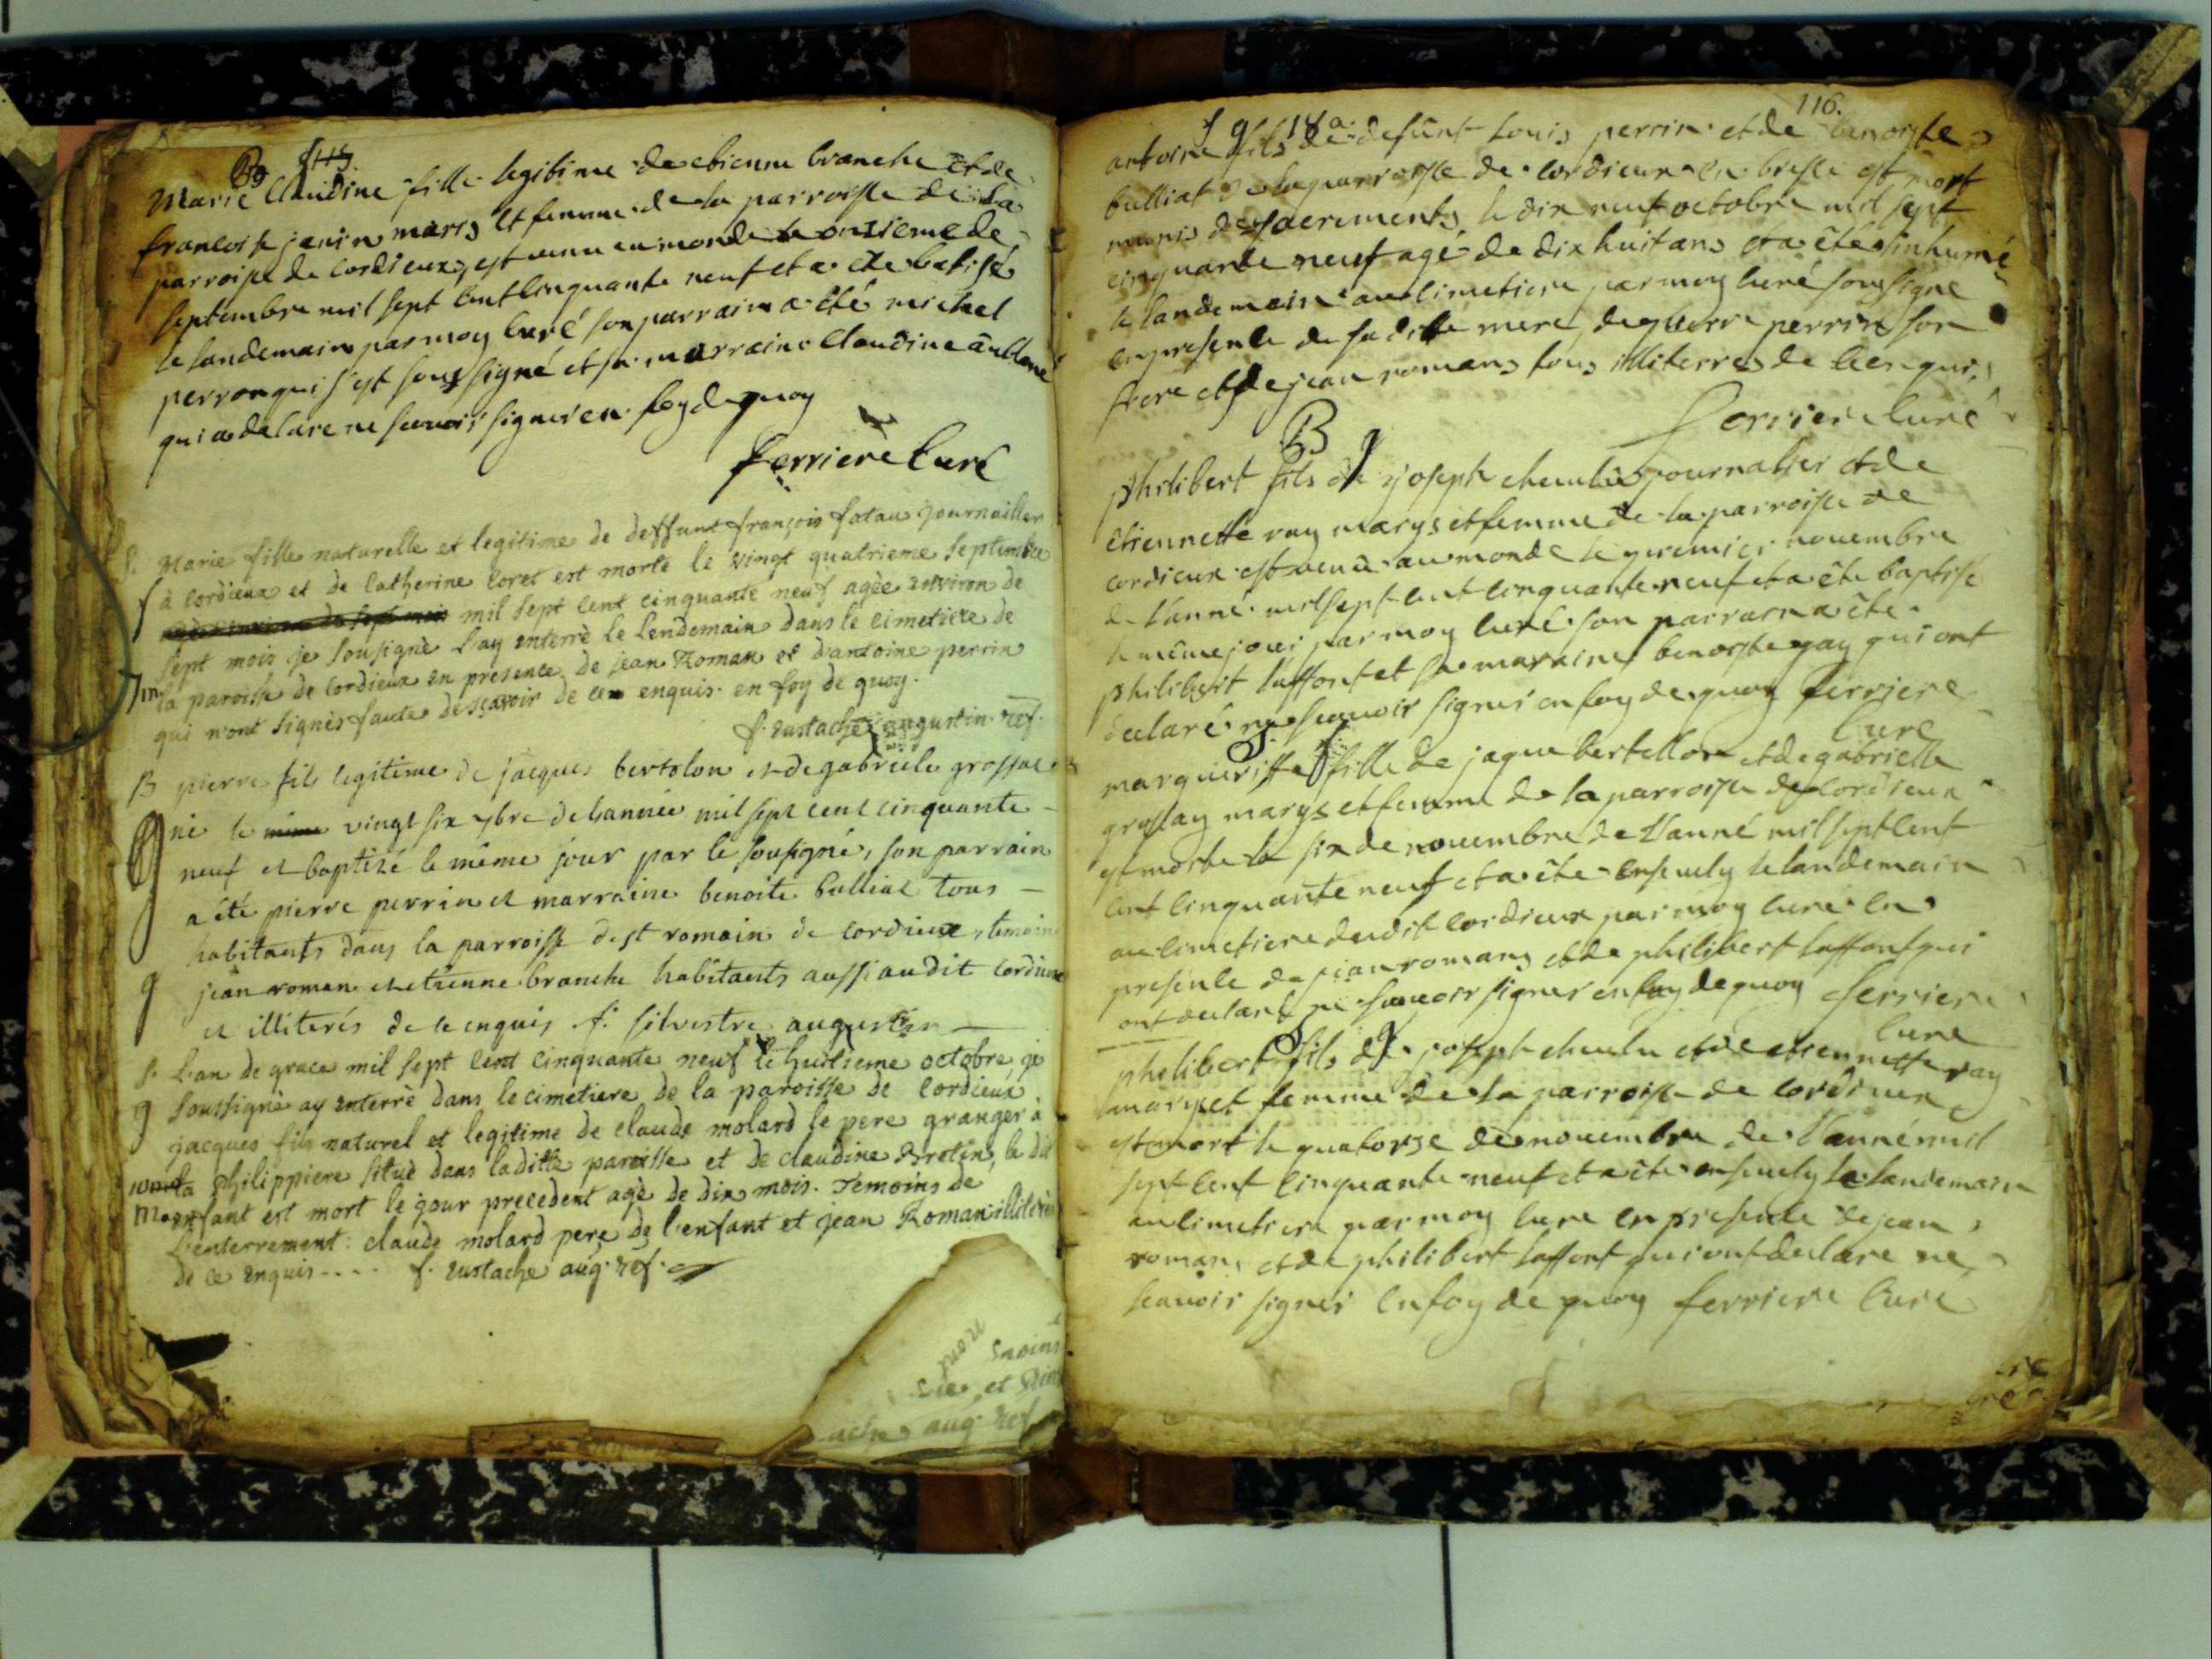 Marie Claudine fille legitime de etienne branche et de
francoise janin marys et femme de la parroisse de la
parroisse de cordieux, est venu au monde le onzieme de
septembre mil sept cent cinquante neuf et a ete batisé
le landemain par moy curé son parrain a été michel
perron qui s'est soussigné et sa marraine Claudine
qui a delare ne scavoir signer en foy de quoy
ferriere Curé
S. Marie fille naturelle et legitime de deffunt françois fatau journailler
à cordieux et de Catherine Coret est morte le vingt quatrieme septembre
agée environ de sept mois mil sept cent cinquante neuf agèe environ de
sept mois je sousignè l'ay enterrè le lendemain dans le cimetiere de
la paroisse de Cordieux en presence de jean Roman et d'antoine perrin
qui n'ont signès faute de sçavoir de ce enquis. en foy de quoy.
f. Eustache augustin ref.
B pierre fils legitime de jacques bertolon et de gabriele grossat
né le même vingt six 7bre de l'année mil sept cent cinquante
neuf et baptizé le même jour par le sousigné, son parrain
a été pierre perrin et marraine benoite bulliat tous
habitants dans la parroisse de st romain de cordieux, temoins
jean roman et etienne branche habitants aussi audit Cordieux
et illiterés de ce enquis f. silvestre augustin
S. L'an de grace mil sept cent cinquante neuf le huitieme octobre, je
soussignè ay enterrè dans le cimetiere de la paroisse de Cordieux
jacques fils naturel et legitime de claude molard le pere granger à
la philippiere situè dans laditte paroisse et de claudine Bretin, le dit
enfant est mort le jour precedent agè de dix mois. Témoins de
l'enterrement: claude molard pere de l'enfant et jean Roman illiterès
de ce enquis.... f. Eustache aug. ref.
aug. ref
116.
antoine fils de defunt Louis perrin et de benoiste
bulliat de la parroisse de cordieux en bresse est mort
munis des sacrements le dix neuf octobre mil sept
cinquante neuf agé de dix huit ans et a été inhumé
le landemain au cimetiere par moy curé soussigné
en presence de sa ditte mere, de pierre perrin son
frere et de jean romans tous illiterres de ce enquis,
ferriere curé
B
philibert fils de joseph chevelu journalier et de
etiennette ray marys et femme de la parroisse de
cordieux est venu au monde le premier novembre
de l'anné mil sept cent cinquante neuf et a été baptisé
le même jour par moy curé son parrain a été
philibert laffont et sa maraine benoiste gay qui ont
declaré ne scavoir signer en foy de quoy ferriere
curé
margueritte fille de jaque bertellon et de gabrielle
grossay marys et femme de la parroisse de cordieux
est morte le six de novembre de l'anné mil sept cent
cent cinquante neuf et a été ensevely le landemain
au cimetiere dudit cordieux par moy curé en
presence de jean romans et de philibert laffont qui
ont declaré ne scavoir signer en foy de quoy ferriere
curé
philibert fils de joseph chevelu et de etiennette ray
marys et femme de la parroisse de cordieux
est mort le quatorze de novembre de l'anné mil
sept cent cinquante neuf et a été ensevely le landemain
au cimetiere par moy curé en presence de jean
romans et de philibert laffont qui ont declare ne
scavoir signer en foy de quoy ferriere curé